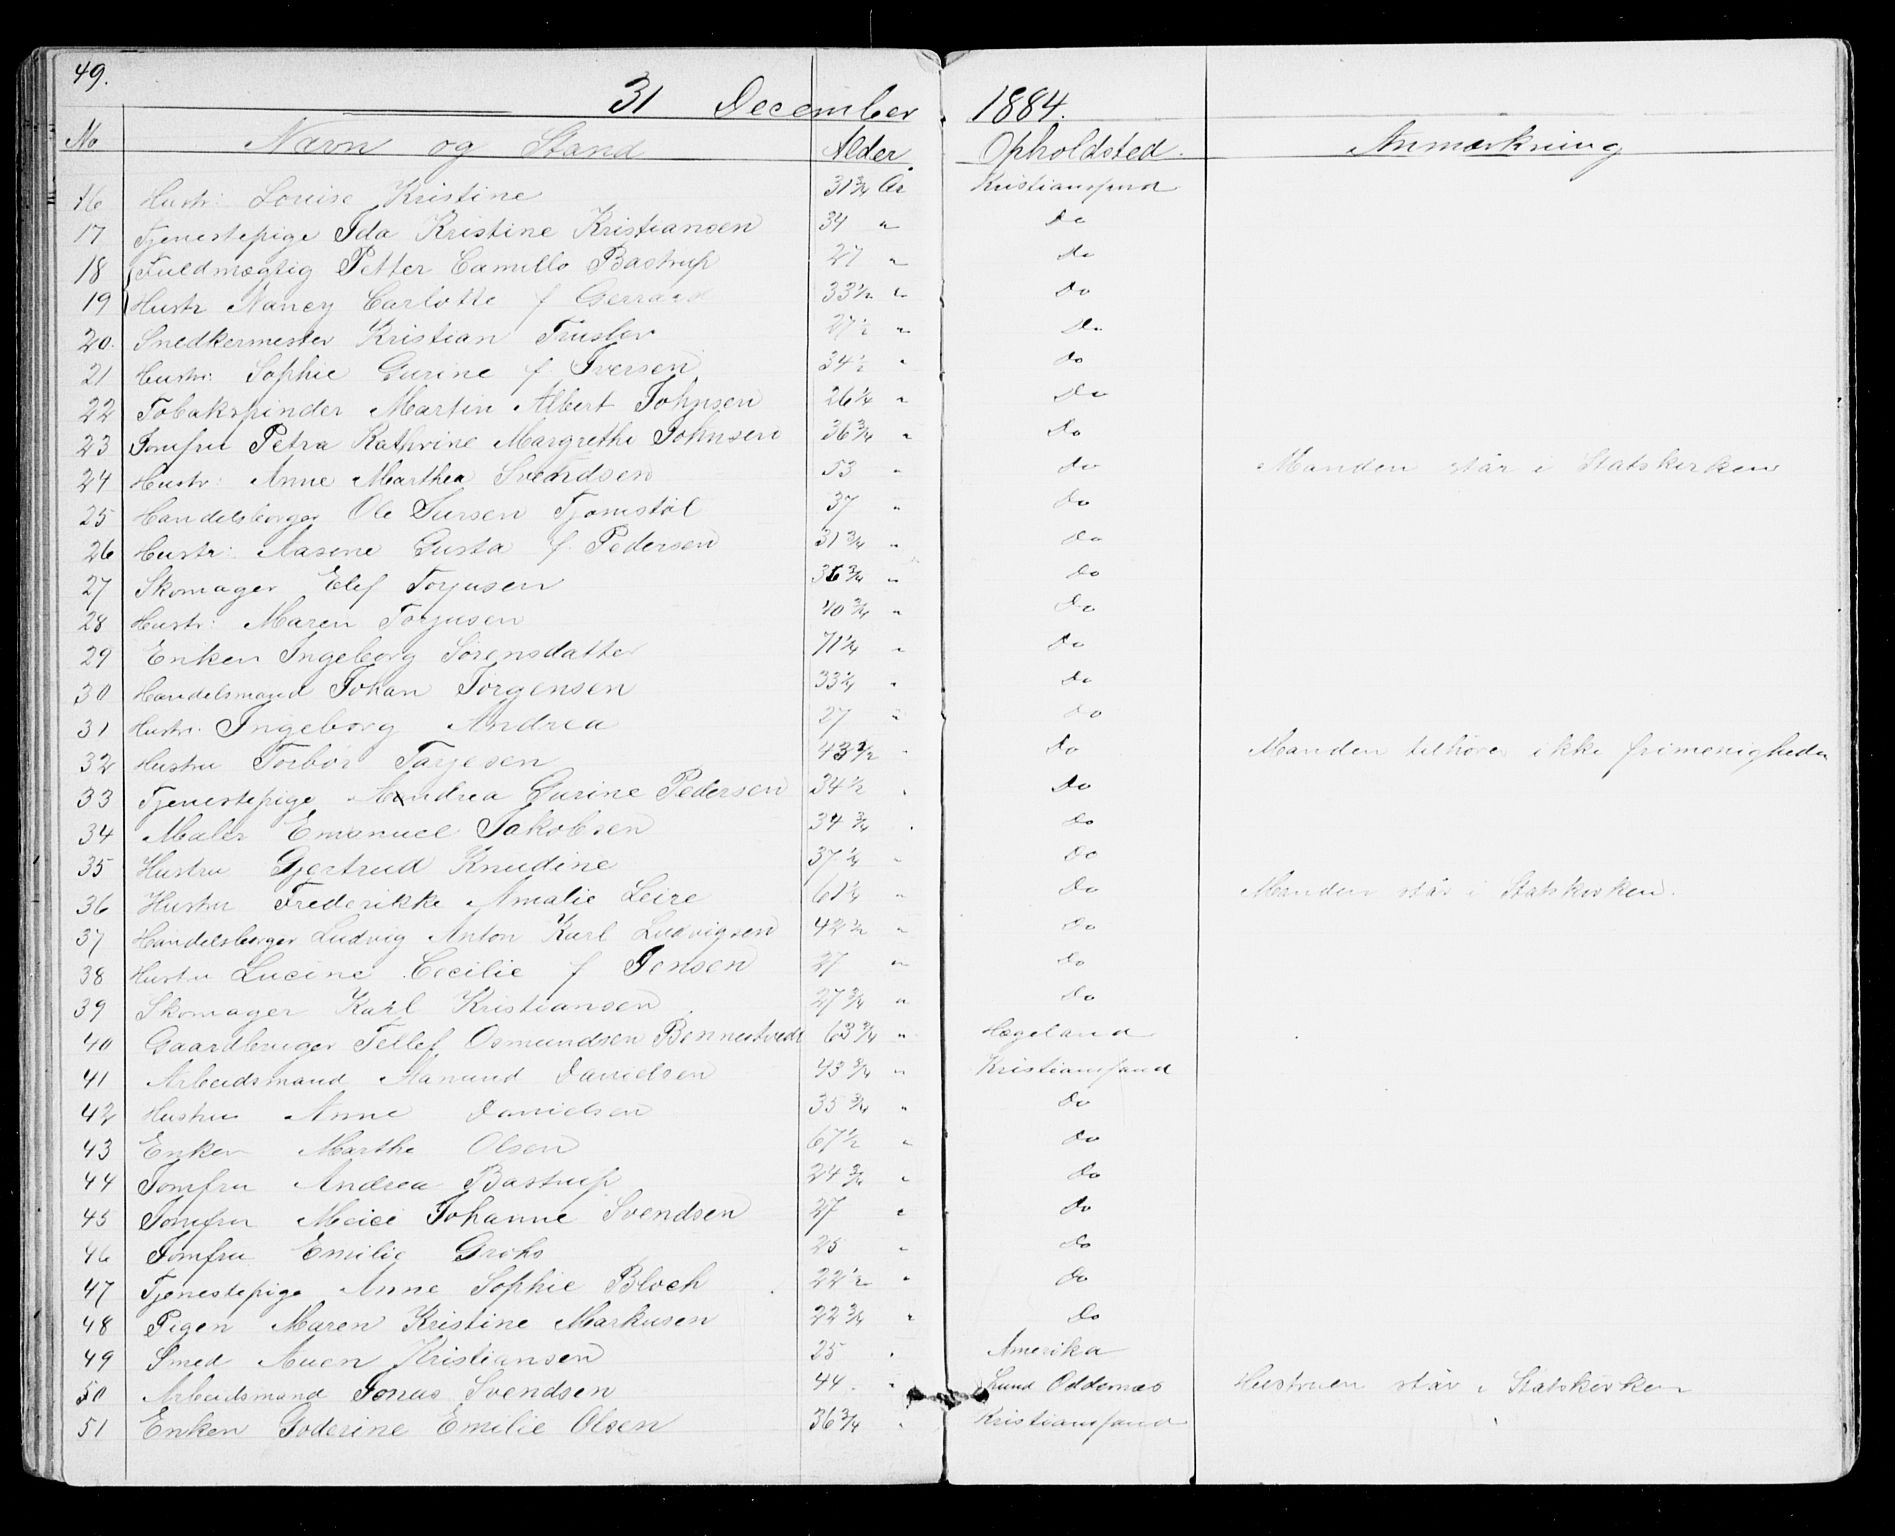 49.
31 December 1884.
No Navn og Stand Alder Opholdsted. Anmærkning
16 Hustr: Louise Kristine 31 3/4 År Kristianssand
17 Tjenestepige Ida Kristine Kristiansen 34 " Do
18 Fuldmægtig Petter Camillo Bastrup 27 " Do
19 Hustr Nancy Carlotte f Gerrard 33 1/2 " Do
20. Snedkermester Kristian Trusler 27 1/2 " Do
21 Hustr: Sophie Gurine f Iversen 34 1/2 " Do
22 Tobakspinder Martin Albert Johnsen 26 1/4 " Do
23 Jomfru Petra Kathrine Margrethe Johnsen 36 3/4 " Do
24 Hustr: Anne Marthea Svendsen 53 " Do Manden står i Statskirken
25 Handelsborger Ole Larsen Tjomstøl 37 " Do
26 Hustr: Aasene Gusta f. Pedersen 31 3/4 " Do
27 Skomager Elef Torjusen 36 3/4 " Do
28 Hustr: Maren Torjusen 40 3/4 " Do
29 Enken Ingeborg Sörensdatter 71 1/4 " Do
30 Handelsmand Johan Jörgensen 33 1/4 " Do
31 Hustr: Ingeborg Andrea 27 " Do
32 Hustru Torbör Tarjesen 43 1/2 " Do Manden tilhører ikke frimenigheden
33 Tjenestepige Andrea Gurine Pedersen 34 1/2 " Do
34 Maler Emanuel Jakobsen 34 3/4 " Do
35 Hustru Gjertrud Knudine 37 1/4 " Do
36 Hustru Frederikke Amalie Leire 61 1/4 " Do Manden står i Statskirken.
37 Handelsborger Ludvig Anton Karl Ludvigsen 42 1/2 " Do
38 Hustru Lucine Cecilie f Jensen 27 " Do
39 Skomager Karl Kristiansen 27 3/4 " Do
40 Gaardbruger Tellef Osmundsen Bennestvedt 63 3/4 " Hægeland
41 Arbeidsmand Hanund Danielsen 43 3/4 " Kristianssand
42 Hustru Anne Danielsen 35 3/4 " Do
43 Enken Marthe Olsen 67 1/2 " Do
44 Jomfru Andrea Bastrup 24 3/4 " Do
45 Jomfru Meice Johanne Svendsen 27 " Do
46 Jomfru Emilie Grohs 25 " Do
47 Tjenestepige Anne Sophie Bloch 22 1/2 " Do
48 Pigen Maren Kristine Markusen 22 3/4 " Do
49 Smed Auen Kristiansen 25 " Amerika
50 Arbeidsmand Jonas Svendsen 44. " Lund Oddernæs Hustruen står i Statskirken
51 Enken Goderine Emilie Olsen 36 3/4 " Kristianssand